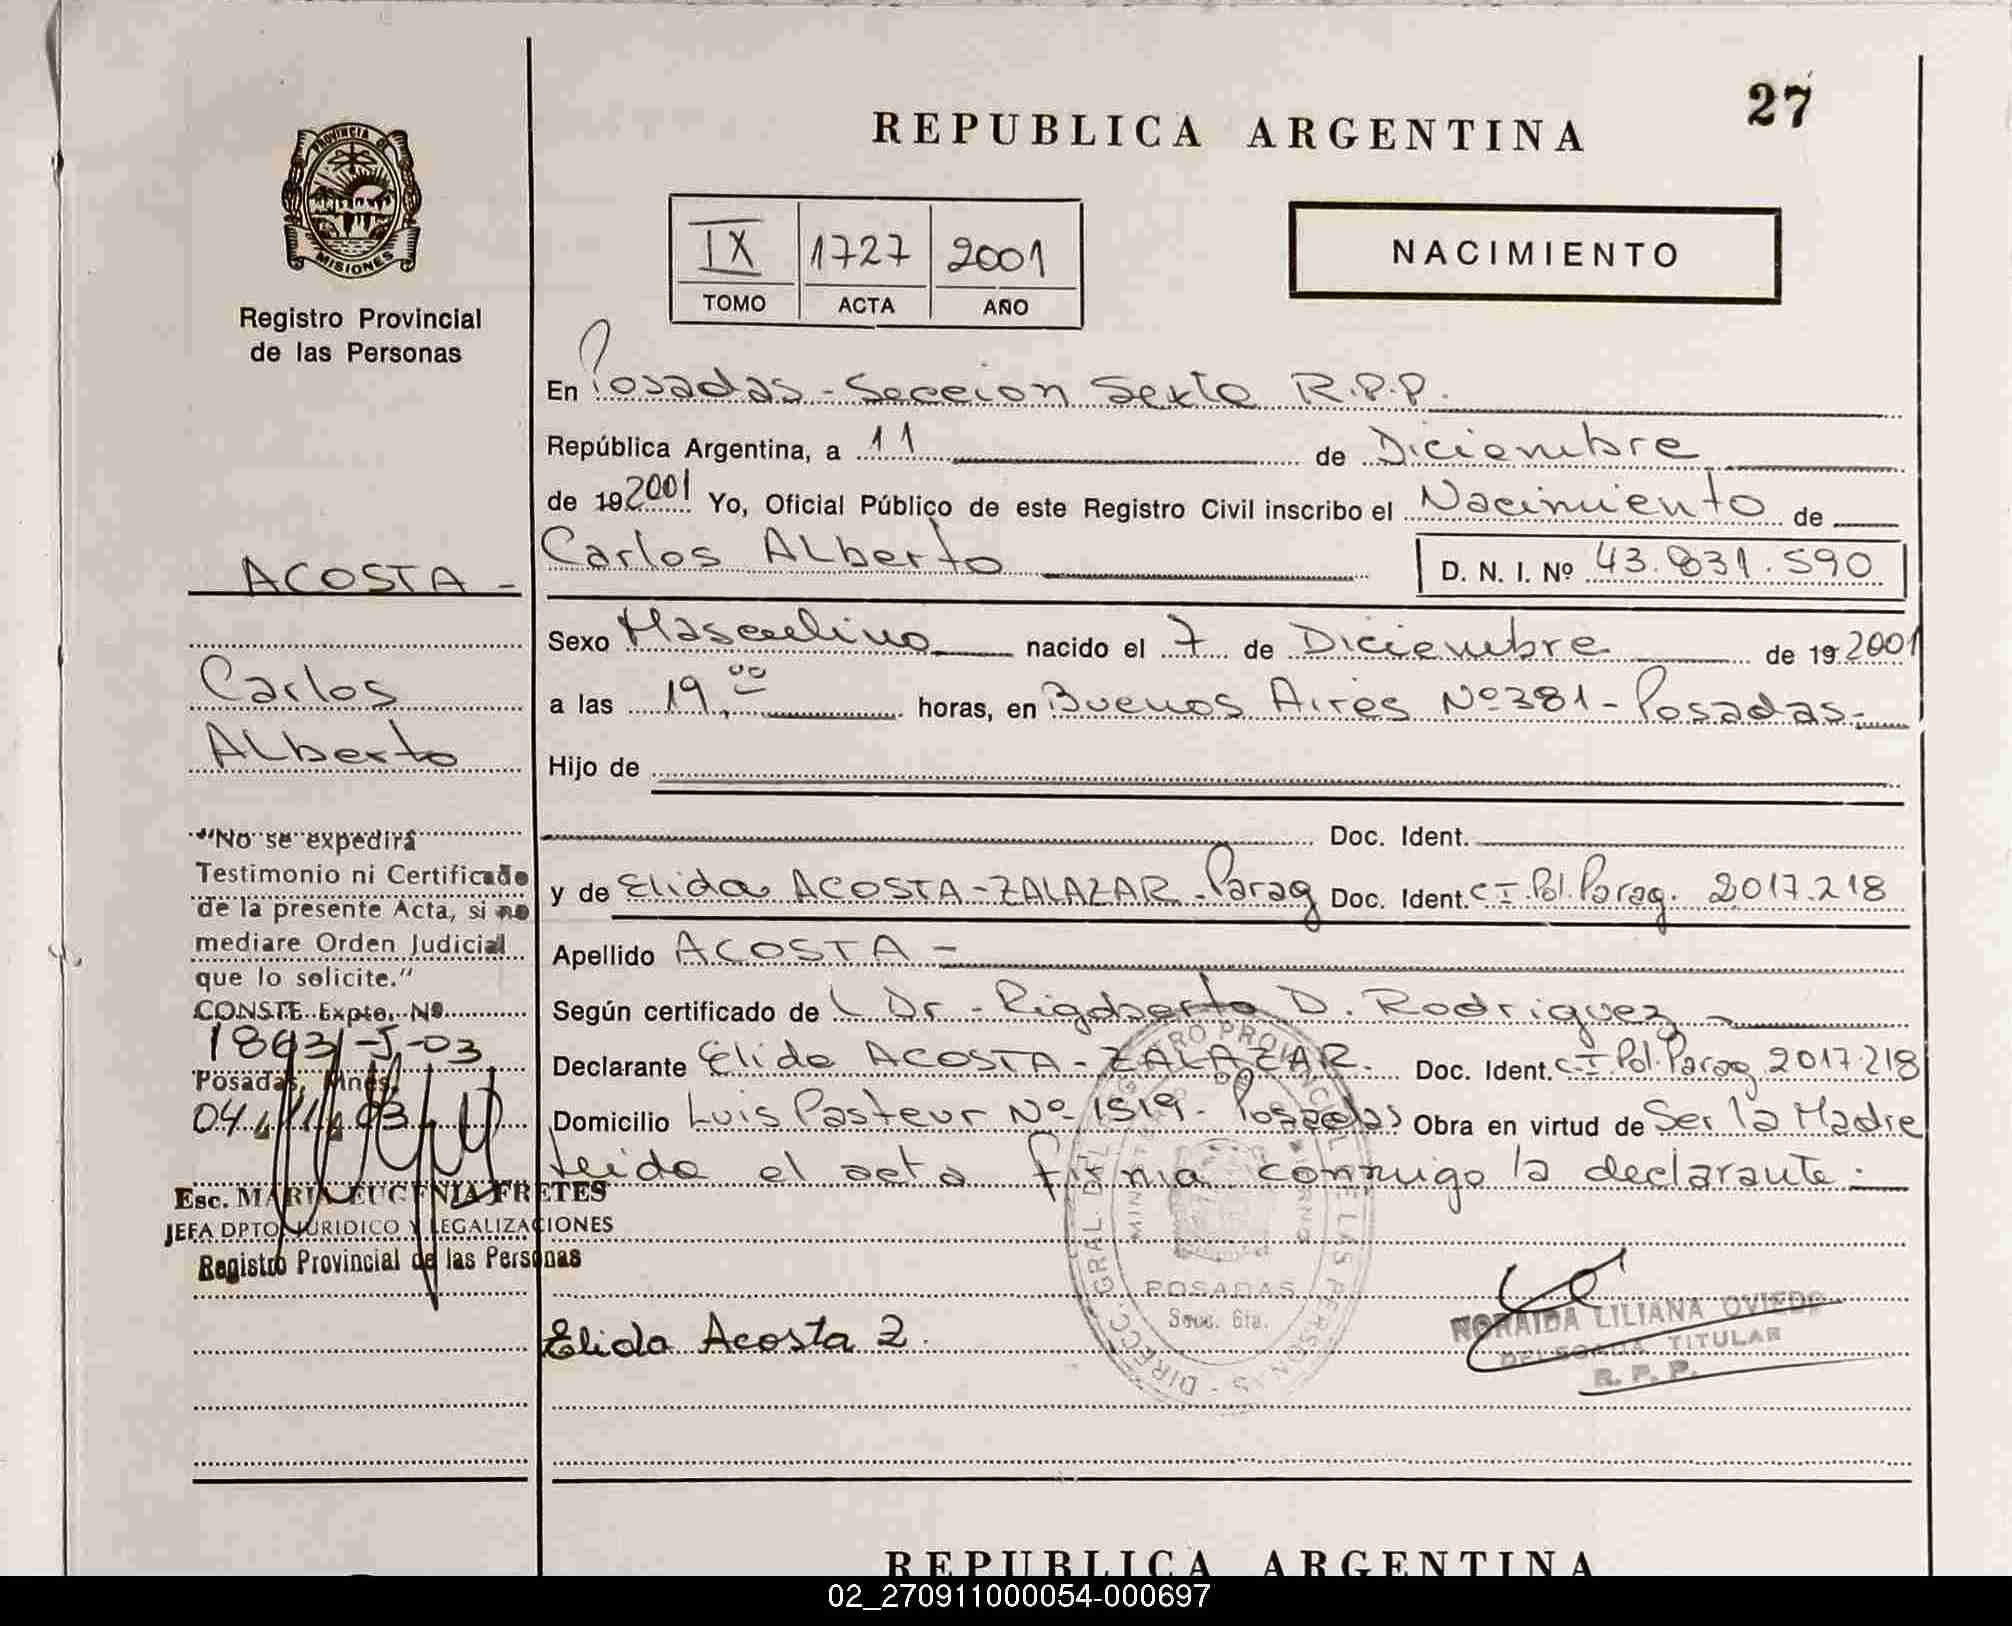 27
REPUBLICA ARGENTINA
PROVINCIA DE
MISIONES
Registro Provincial
de las Personas
IX 1727 2001
TOMO ACTA AÑO
NACIMIENTO
En Posadas - Seccion Sexta R.P.P.
República Argentina, a 11 de Diciembre
de 19 2001 Yo, Oficial Público de este Registro Civil inscribo el Nacimiento de
Carlos Alberto D. N. I. Nº 43.831.590
Sexo Masculino nacido el 7 de Diciembre de 19 2001
a las 19,00 horas, en Buenos Aires Nº 381 - Posadas -
Hijo de
Doc. Ident.
y de Elida ACOSTA - ZALAZAR - Parag Doc. Ident. C.I. Pol. Parag. 2017.218
Apellido ACOSTA -
Según certificado de Dr - Rigoberto D. Rodriguez
Declarante Elida ACOSTA - ZALAZAR - Doc. Ident. C.I. Pol. Parag 2017.218
Domicilio Luis Pasteur Nº 1519 - Posadas Obra en virtud de Ser la Madre
leida el acta firma conmigo la declarante -
Elida Acosta Z.
ACOSTA -
Carlos
Alberto
"No se expedirá
Testimonio ni Certificado
de la presente Acta, si no
mediare Orden Judicial
que lo solicite."
CONSTE Expte. Nº
1863-J-03
Posadas, Mnes,
04
Esc. MARIA EUGENIA FRETES
JEFA DPTO JURIDICO Y LEGALIZACIONES
Registro Provincial de las Personas
DIRECC. GRAL. DEL REGISTRO PROVINCIAL DE LAS PERSONAS
POSADAS
Secc. 6ta.
NORAIDA LILIANA OVIEDO
DELEGADA TITULAR
R. P. P.
REPUBLICA ARGENTINA
02_270911000054-000697